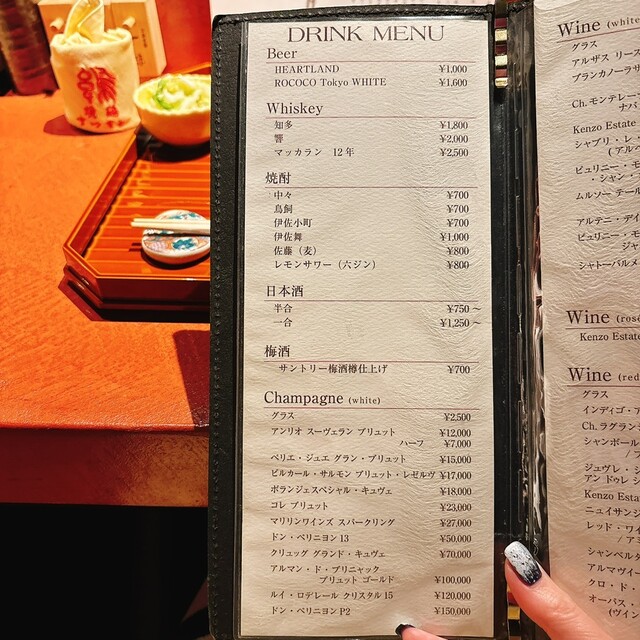 DRINK MENU
Beer
HEARTLAND ¥1,000
ROCOCO Tokyo WHITE ¥1,600
Whiskey
知多 ¥1,800
響 ¥2,000
マッカラン 12年 ¥2,500
焼酎
中々 ¥700
鳥飼 ¥700
伊佐小町 ¥700
伊佐舞 ¥1,000
佐藤（麦） ¥800
レモンサワー（六ジン） ¥800
日本酒
半合 ¥750～
一合 ¥1,250～
梅酒
サントリー梅酒樽仕上げ ¥700
Champagne (white)
グラス ¥2,500
アンリオ スーヴェラン ブリュット ¥12,000
ハーフ ¥7,000
ペリエ・ジュエ グラン・ブリュット ¥15,000
ビルカール・サルモン ブリュット・レゼルヴ ¥17,000
ボランジェスペシャル・キュヴェ ¥18,000
コレ ブリュット ¥23,000
マリリンワインズ スパークリング ¥27,000
ドン・ペリニヨン 13 ¥50,000
クリュッグ グランド・キュヴェ ¥70,000
アルマン・ド・ブリニャック
ブリュット ゴールド ¥100,000
ルイ・ロデレール クリスタル 15 ¥120,000
ドン・ペリニヨン P2 ¥150,000
Wine (white
グラス
アルザス リース
ブランカノーラ
Ch.モンテレーナ
ナパ
Kenzo Estate
シャブリ・レ
ピュリニー・モ
・シャン・
ムルソー テール
アルテニ・ディ
ピュリニー・モ
ジャ
シャトーバルメ
Wine (rosé
Kenzo Estate
Wine (red
グラス
インディゴ・ア
Ch.ラグランジ
シャンボール
ジュヴレ・シ
アン ドゥレ シ
Kenzo Estate
ニュイサンジ
レッド・ワイ
/ アミ
シャンベル
アルマヴィー
クロ・ド・
オーパス・
(ヴィン